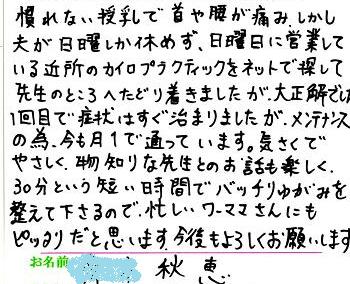 慣れない授乳で首や腰が痛み、しかし
夫が日曜しか休めず、日曜日に営業して
いる近所のカイロプラクティックをネットで探して
先生のところへたどり着きましたが、大正解でした
1回目で症状はすぐ治まりましたが、メンテナンス
の為、今も月1で通っています。気さくで
やさしく、物知りな先生とのお話も楽しく、
30分という短い時間でバッチリゆがみを
整えて下さるので、忙しいワーママさんにも
ピッタリだと思います。今後もよろしくお願いします
お名前 秋恵